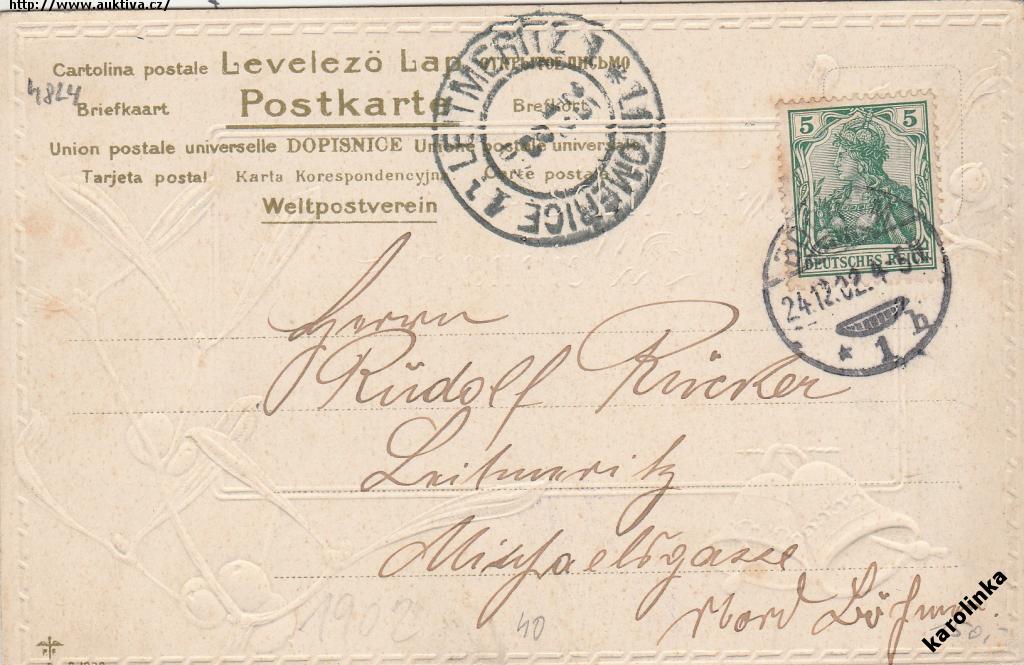 http://www.auktiva.cz/
Cartolina postale Levelező Lap ОТКРЫТОЕ ПИСЬМО
4824
Briefkaart Postkarte Brefkort
Union postale universelle DOPISNICE Unione postale universale
Tarjeta postal Karta Korespondencyjna Carte postale
Weltpostverein
LEITMERITZ 1 * LITOMĚŘICE 1
5 5
DEUTSCHES REICH
24.12.02. 4-5N
* 1 h
Herrn
Rudolf Rücker
Leitmeritz
Michaelsgasse
Nord Böhmen
1902
40
50,-
karolinka